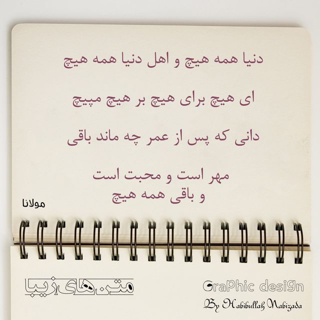 دنیا همه هیچ و اهل دنیا همه هیچ
ای هیچ برای هیچ بر هیچ مپیچ
دانی که پس از عمر چه ماند باقی
مهر است و محبت است
و باقی همه هیچ
مولانا
متن های زیبا
GraPhic desI9n
By Habibullah Nabizada